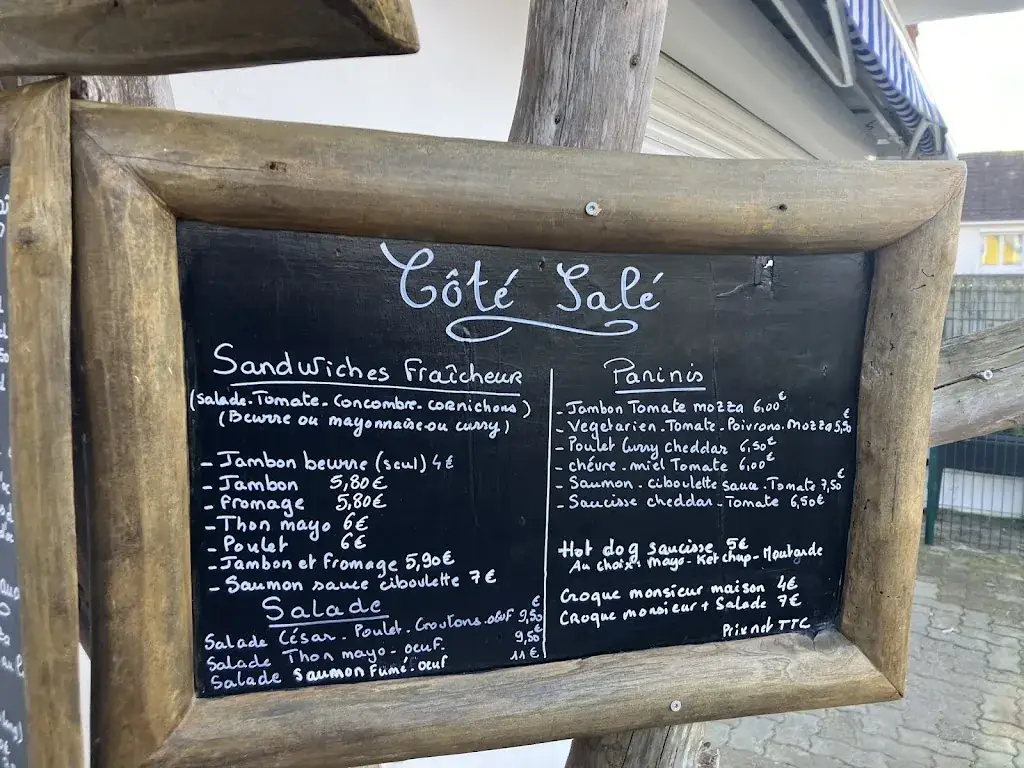 Côté Salé
Sandwiches Fraîcheur
(Salade - Tomate - Concombre - cornichons)
(Beurre ou mayonnaise ou curry)
- Jambon beurre (seul) 4€
- Jambon 5,80€
- Fromage 5,80€
- Thon mayo 6€
- Poulet 6€
- Jambon et fromage 5,90€
- Saumon sauce ciboulette 7€
Salade
Salade César - Poulet - Croutons - oeuf 9,50€
Salade Thon mayo - oeuf. 9,50
Salade Saumon Fumé - oeuf 11€
Paninis
- Jambon Tomate mozza 6,00€
- Vegetarien - Tomate - Poivrons - Mozza 5,50€
- Poulet Curry cheddar 6,50€
- chévre - miel Tomate 6,00€
- Saumon - ciboulette sauce - Tomate 7,50€
- Saucisse cheddar - Tomate 6,50€
Hot dog saucisse 5€
Au choix: mayo - Ketchup - Moutarde
Croque monsieur maison 4€
Croque monsieur + Salade 7€
Prix net TTC